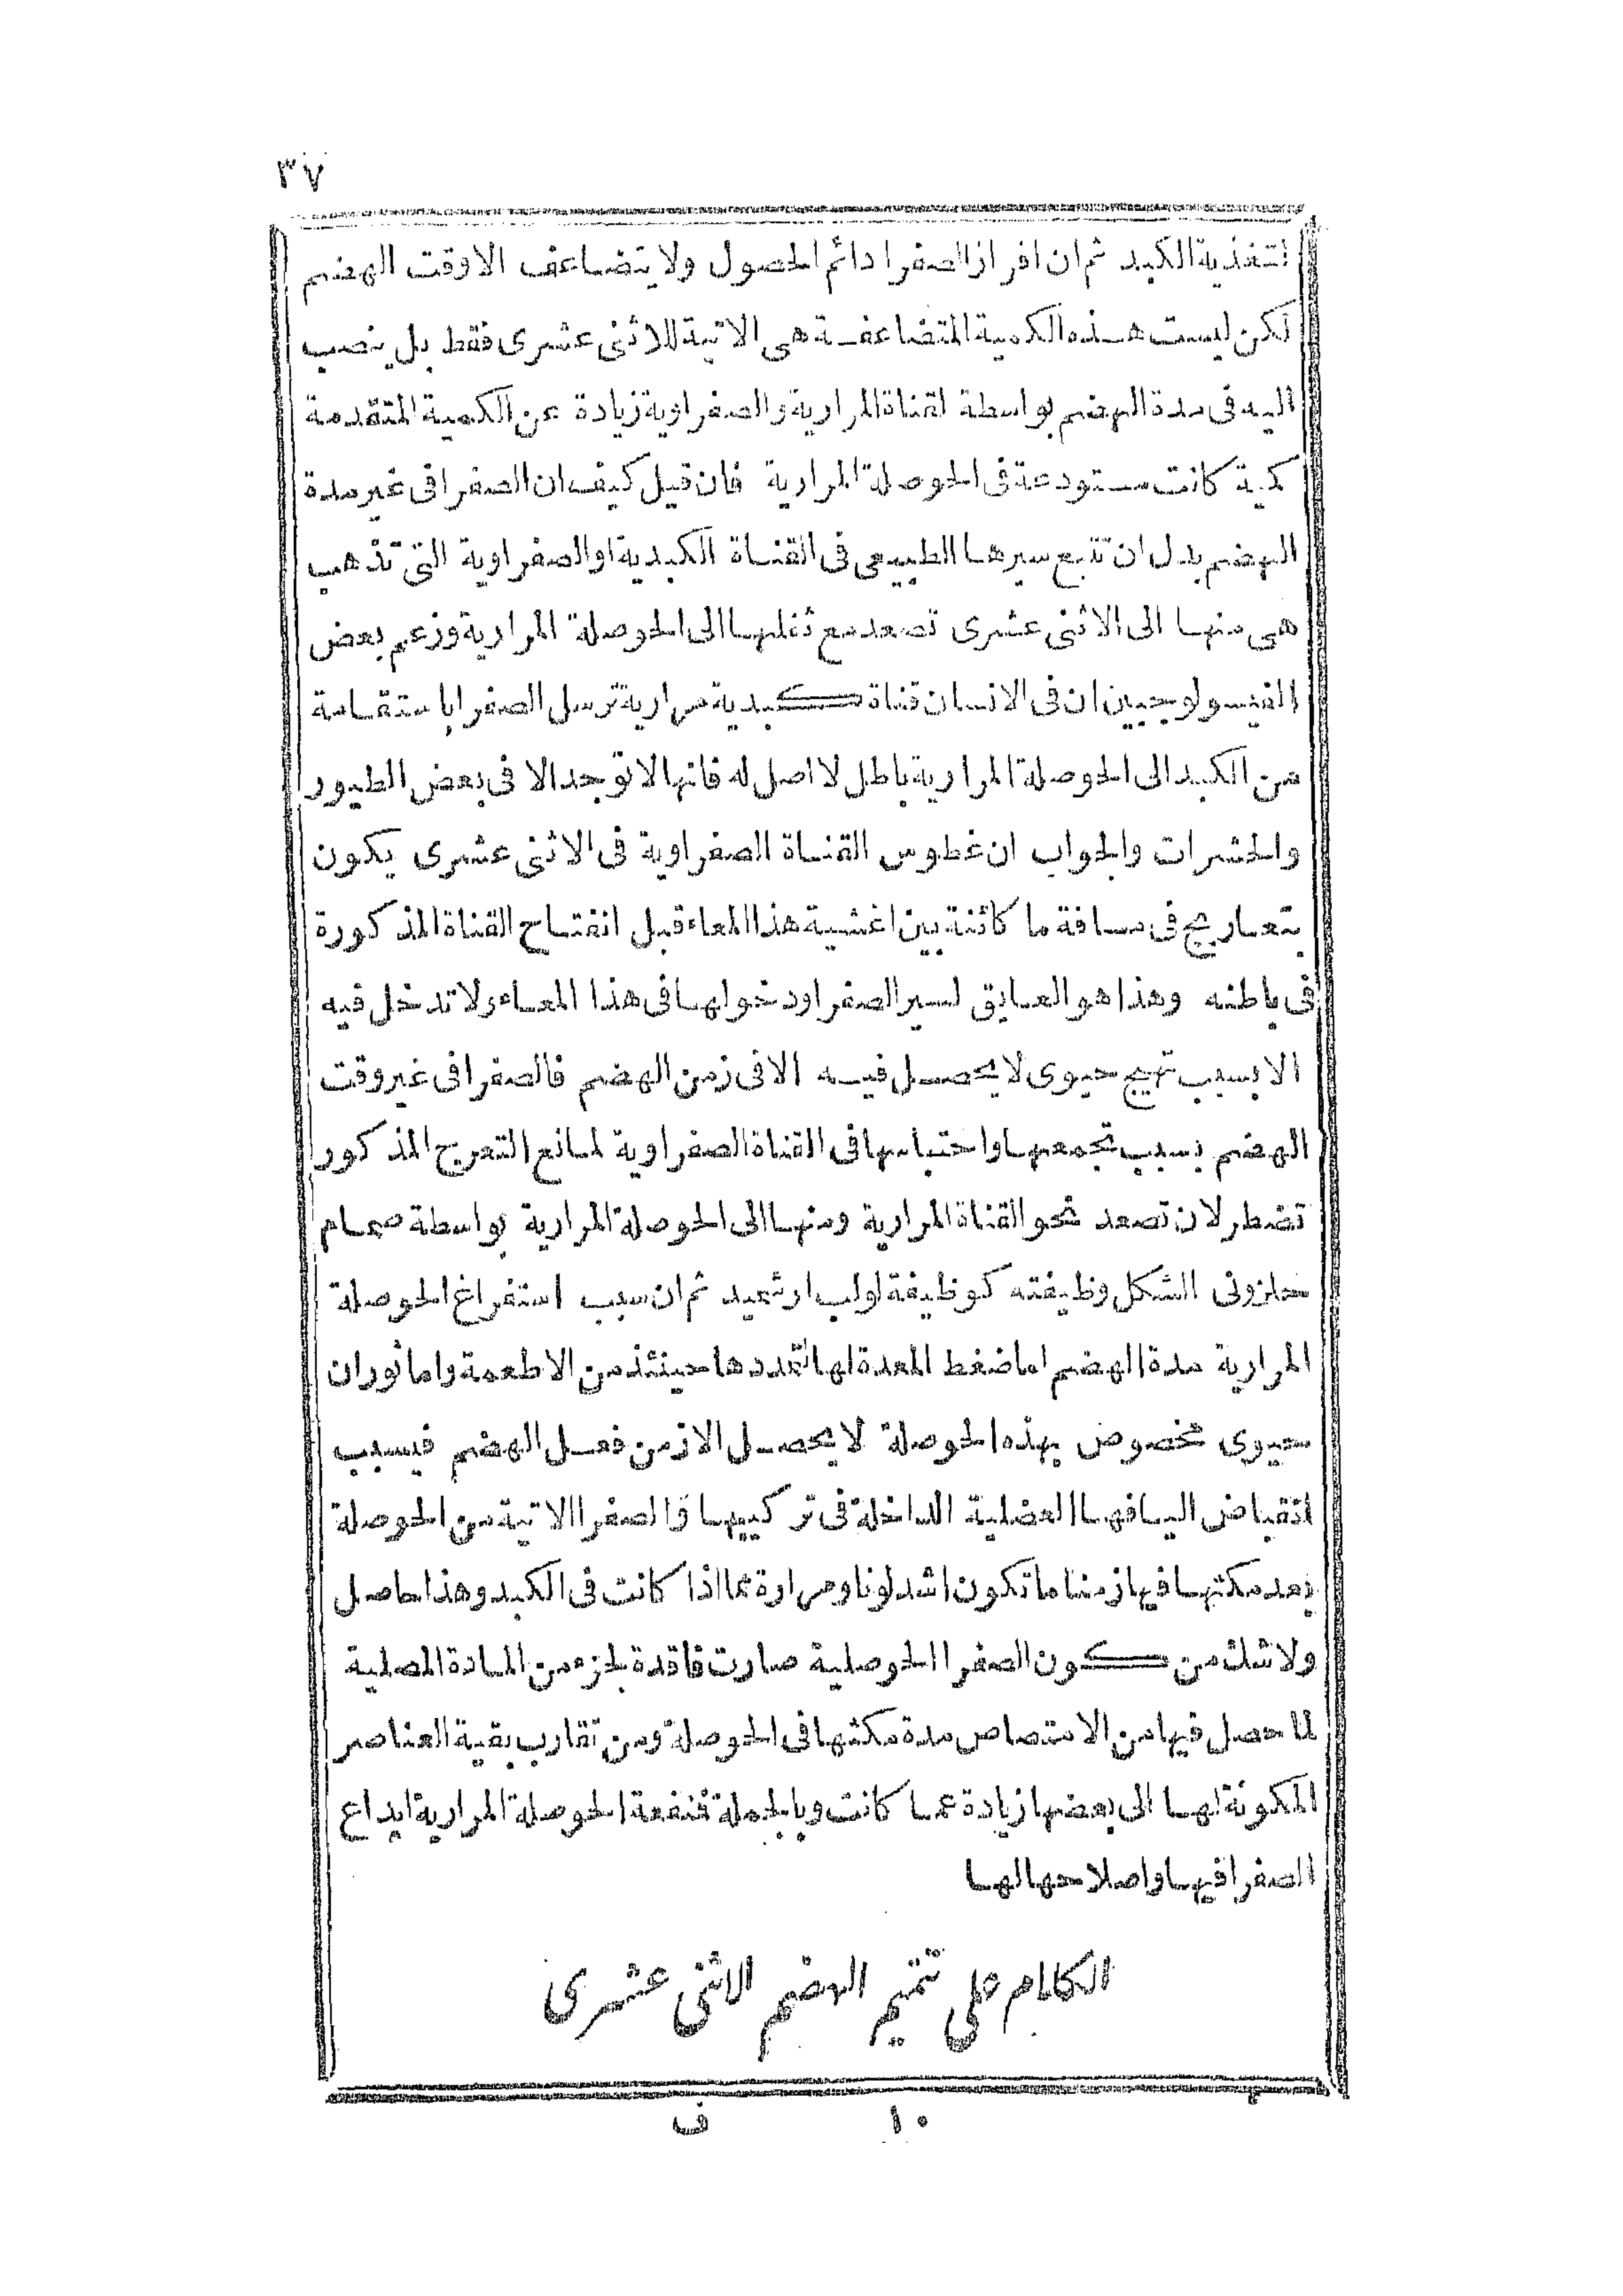 ٣٧
لتغذية الكبد ثم ان افراز الصفرا دائم الحصول ولا يتضاعف الا وقت الهضم
لكن ليست هذه الكمية المتضاعفة هى الاتية للاثنى عشرى فقط بل ينصب
اليه فى مدة الهضم بواسطة القناة المرارية والصفراوية زيادة عن الكمية المتقدمة
كمية كانت مستودعة فى الحوصلة المرارية فان قيل كيف ان الصفرا فى غير مدة
الهضم بدل ان تتبع سيرها الطبيعى فى القناة الكبدية او الصفراوية التى تذهب
هى منها الى الاثنى عشرى تصعد مع ثقلها الى الحوصلة المرارية وزعم بعض
الفيسولوجيين ان فى الانسان قناة كبدية مرارية ترسل الصفرا باستقامة
من الكبد الى الحوصلة المرارية باطل لا اصل له فانها لا توجد الا فى بعض الطيور
والحشرات والجواب ان غطوس القناة الصفراوية فى الاثنى عشرى يكون
بتعاريج فى مسافة ما كائنة بين اغشية هذا المعاء قبل انفتاح القناة المذكورة
فى باطنه وهذا هو العايق لسير الصفرا ودخولها فى هذا المعاء ولا تدخل فيه
الا بسبب تهيج حيوى لا يحصل فيه الا فى زمن الهضم فالصفرا فى غير وقت
الهضم بسبب تجمعها واحتباسها فى القناة الصفراوية لمانع التعريج المذكور
تضطر لان تصعد نحو القناة المرارية ومنها الى الحوصلة المرارية بواسطة صمام
حلزونى الشكل وظيفته كوظيفة لولب ارشميد ثم ان سبب استفراغ الحوصلة
المرارية مدة الهضم اما ضغط المعدة لها لتمددها حينئذ من الاطعمة واما ثوران
حيوى مخصوص بهذه الحوصلة لا يحصل الا زمن فعل الهضم فيسبب
انقباض اليافها العضلية الداخلة فى تركيبها والصفرا الاتية من الحوصلة
بعد مكثها فيها زمنا ما تكون اشد لونا ومرارة مما اذا كانت فى الكبد وهذا حاصل
ولا شك من كون الصفرا الحوصلية صارت فاقدة لجزء من المادة المصلية
لما حصل فيها من الامتصاص مدة مكثها فى الحوصلة ومن تقارب بقية العناصر
المكونة لها الى بعضها زيادة عما كانت وبالجملة فمنفعة الحوصلة المرارية ايداع
الصفرا فيها واصلاحها لها
الكلام على تتميم الهضم الاثنى عشرى
١٠ ف